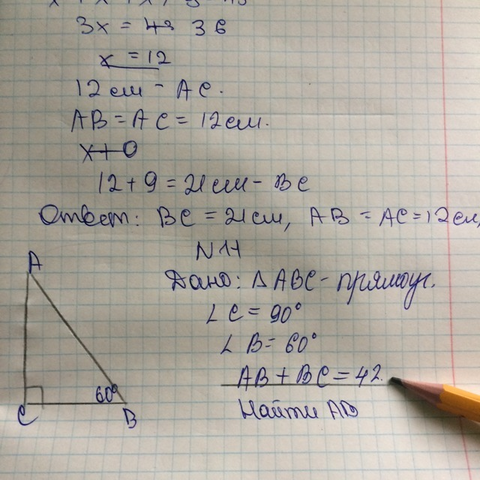 3x = 48 36
x = 12
12 см - AC.
AB = AC = 12 см.
x + 0
12 + 9 = 21 см - BC
Ответ: BC = 21 см, AB = AC = 12 см,
N 11
Дано: △ABC - прямоуг.
∠C = 90°
∠B = 60°
AB + BC = 42.
Найти
A
60°
C
B